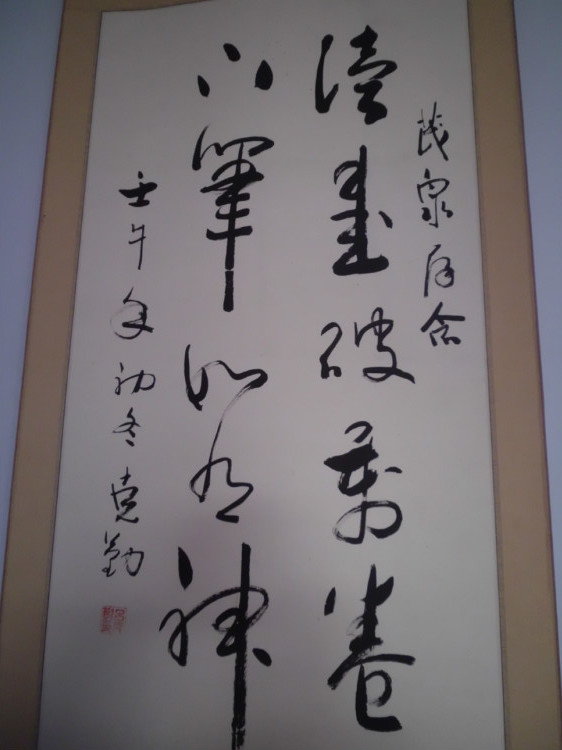 茂泉存念
读书破万卷
下笔如有神
壬午年初冬克勤